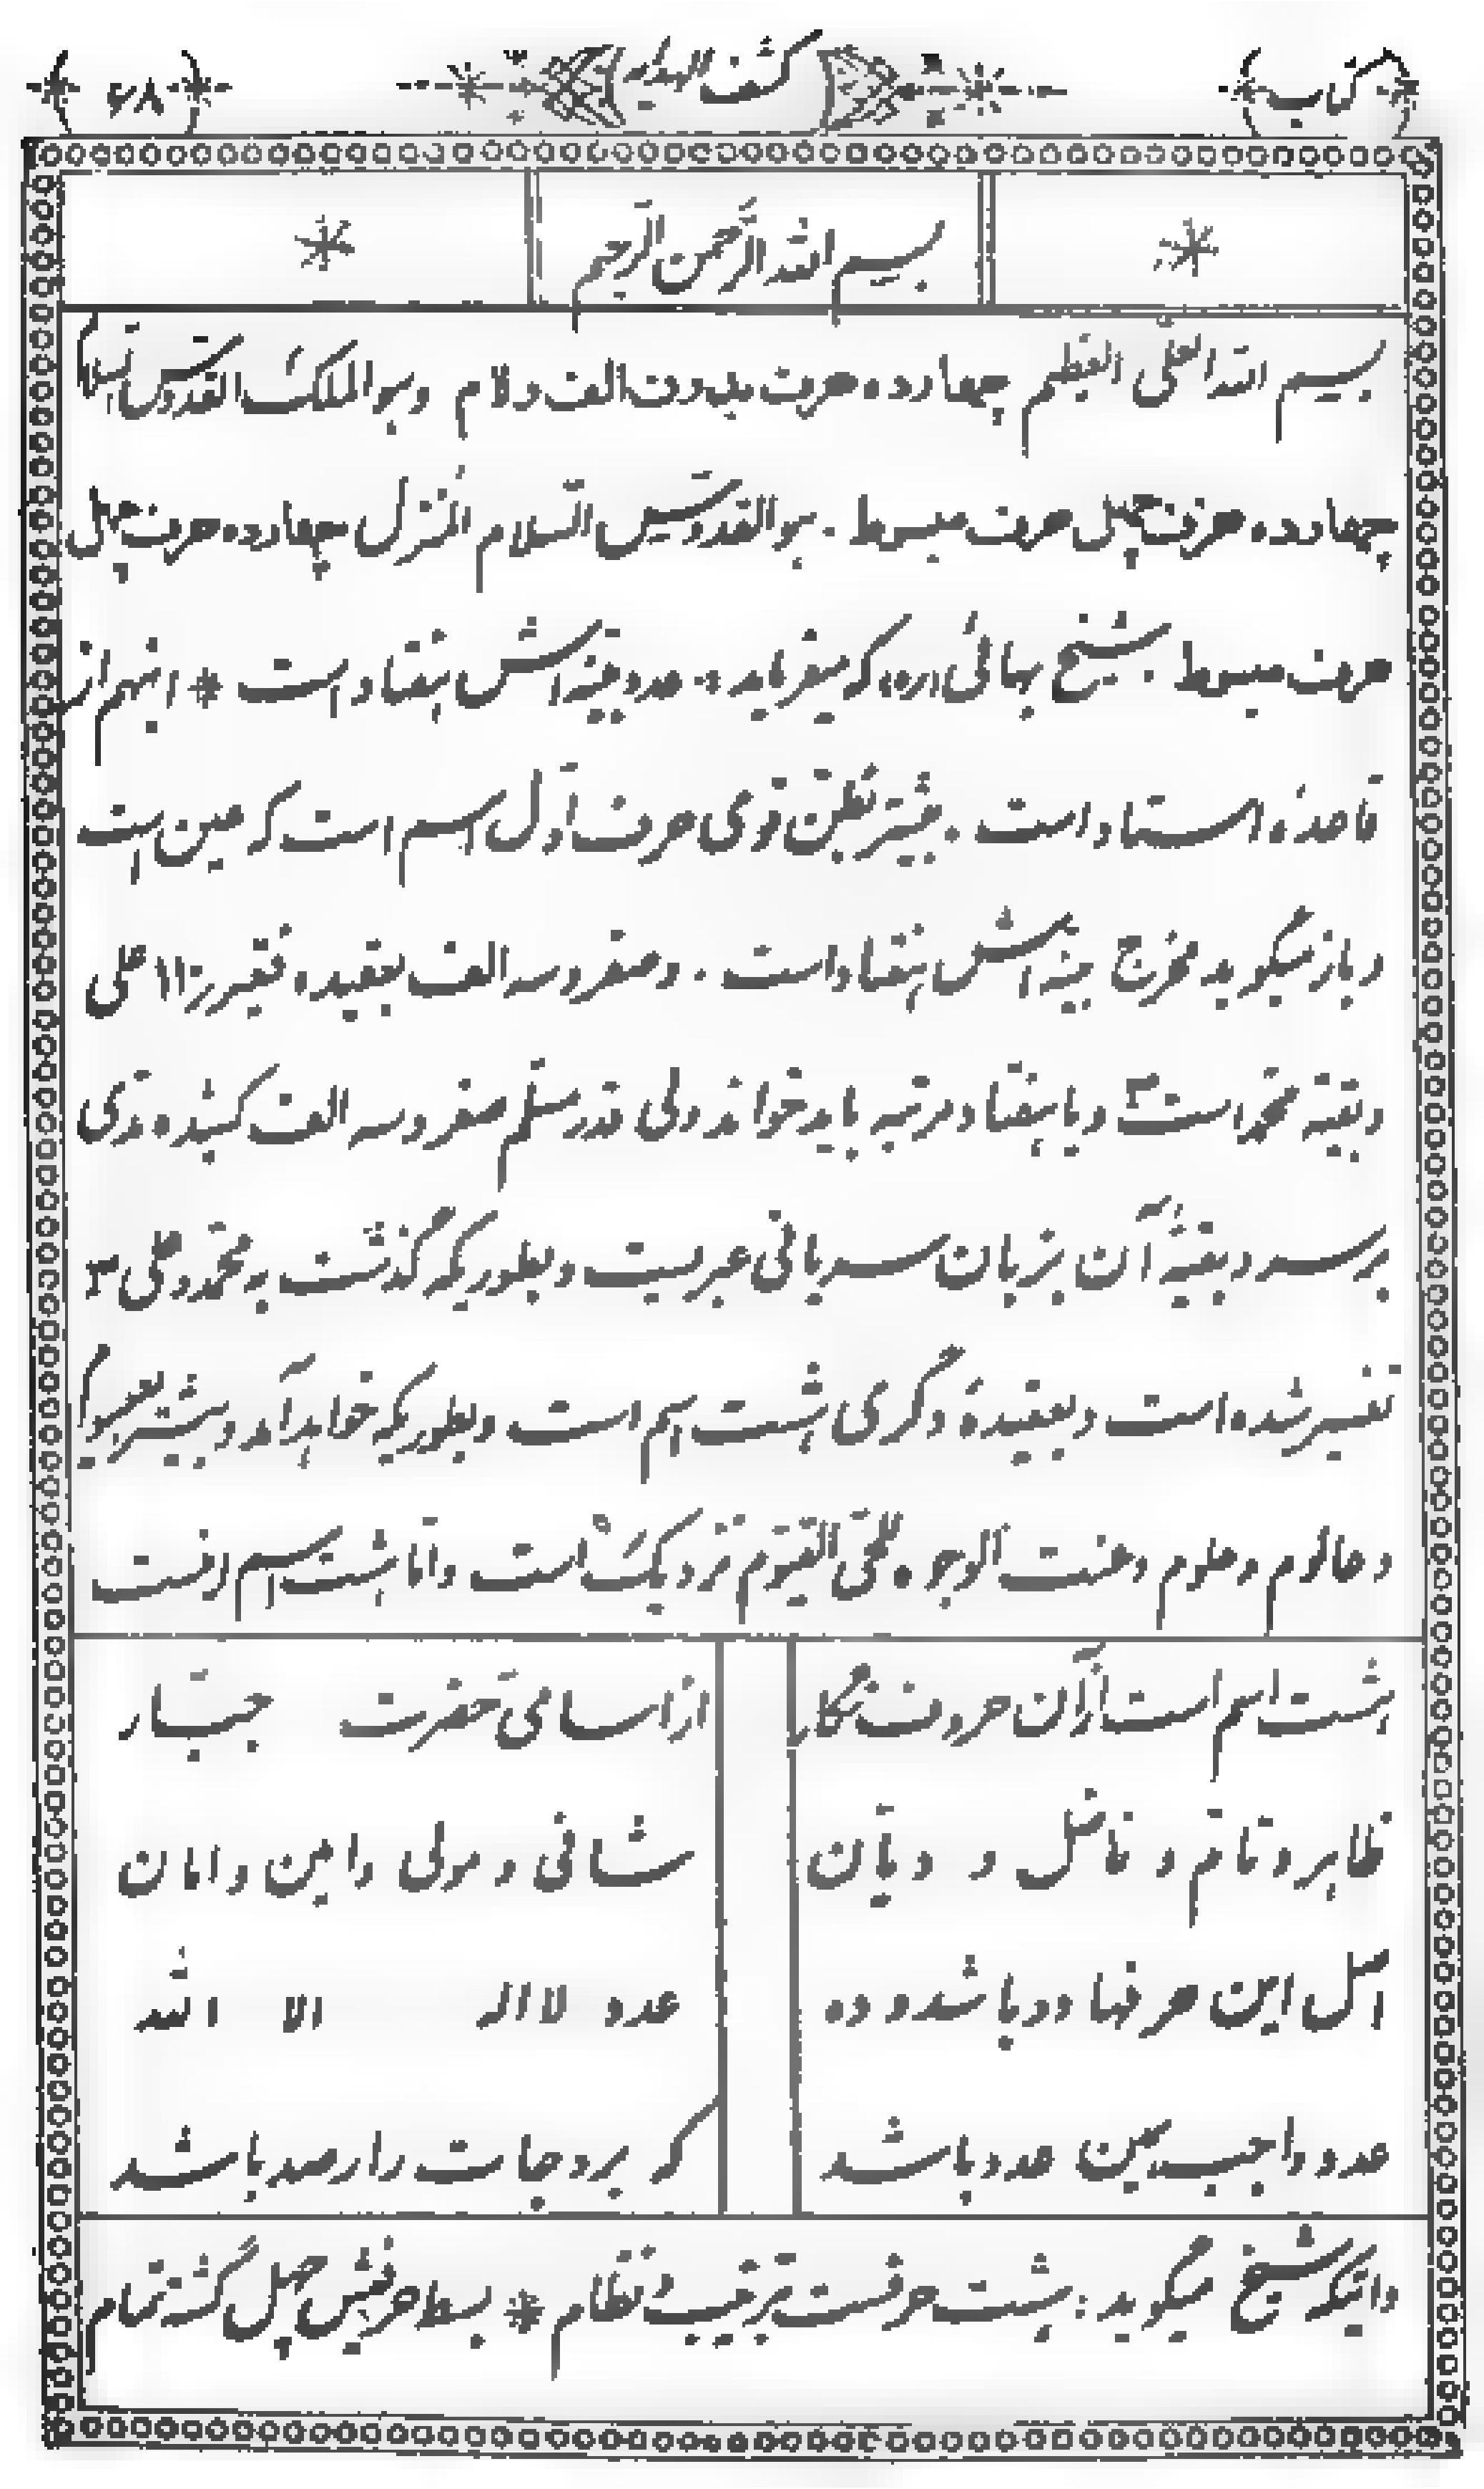 کتاب کشف الهدایه ۶۸
بسم الله الرحمن الرحیم
بسم الله العلی العظیم چهارده حرف بدون الف و لام وهو الملک القدوس السلام
چهارده حرف چهل حرف مبسوط . هو القدوس السلام المنزل چهارده حرف چهل
حرف مبسوط . شیخ بهائی ره که میفرماید : عدد بینه اش هفتاد است * اینهم از
قاعدهٔ استاد است . بیشتر نطق قوی حرف اول اسم است که عین است
و باز میگوید مخرج بینه اش هفتاد است . و صفر و سه الف بعقیده فقیر علی
و بقیه محمد است و یا هفتاد مرتبه باید خواند ولی قدر مسلم صفر و سه الف کشیده
برسد و بقیهٔ آن بزبان سریانی عبریست و بطوریکه گذشت به محمد و علی
تفسیر شده است و بعقیدهٔ دگری هشت اسم است و بطوریکه خواهد آمد و بیشتر
و عالوم و علوم و عنت الوجوه للحی القیوم نزدیک است و اما هشت اسم اینست
هشت اسم است از آن حروف نگار از اسامی حضرت جبار
ظاهر و تام و فاضل و دیان شافی و مولی و امین و امان
اصل این حرفها دو باشد و ده عدد لا اله الا الله
عدد واجب همین عدد باشد که بر درجات را رصد باشد
و اینکه شیخ میگوید : هشت حرفست ترتیب و نظام * بسط حرفیش چهل گشته تمام